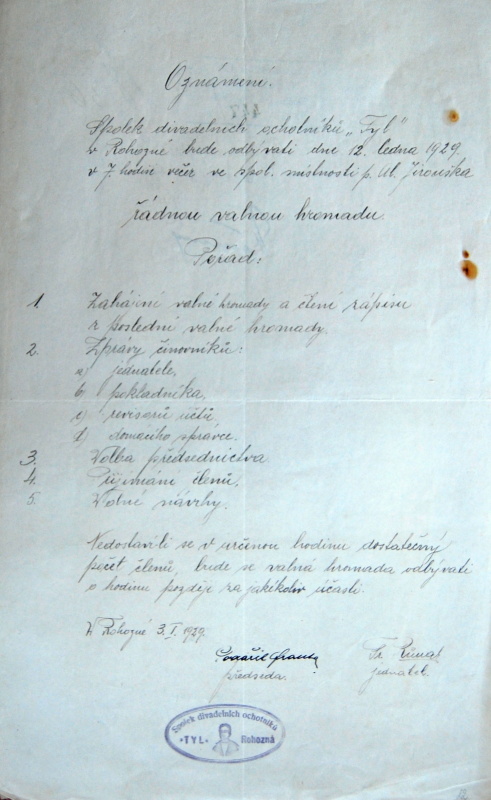 Oznámení.
Spolek divadelních ochotníků „Tyl"
v Rohozné bude odbývati dne 12. ledna 1929.
v 7. hodin večer ve spol. místnosti p. Ul. Jirouška
řádnou valnou hromadu.
Pořad:
1. Zahájení valné hromady a čtení zápisu
z poslední valné hromady.
2. Zprávy činovníků:
a) jednatele,
b) pokladníka,
c) revisorů účtů,
d) domacího správce.
3. Volba předsednictva
4. Přijímání členů.
5. Volné návrhy.
Nedostaví-li se v určinou hodinu dostatečný
počet členů, bude se valná hromada odbývati
o hodinu později za jakékoliv účasti.
V Rohozné 3. I. 1929.
předseda.
jednatel.
Spolek divadelních ochotníků
"TYL" Rohozná